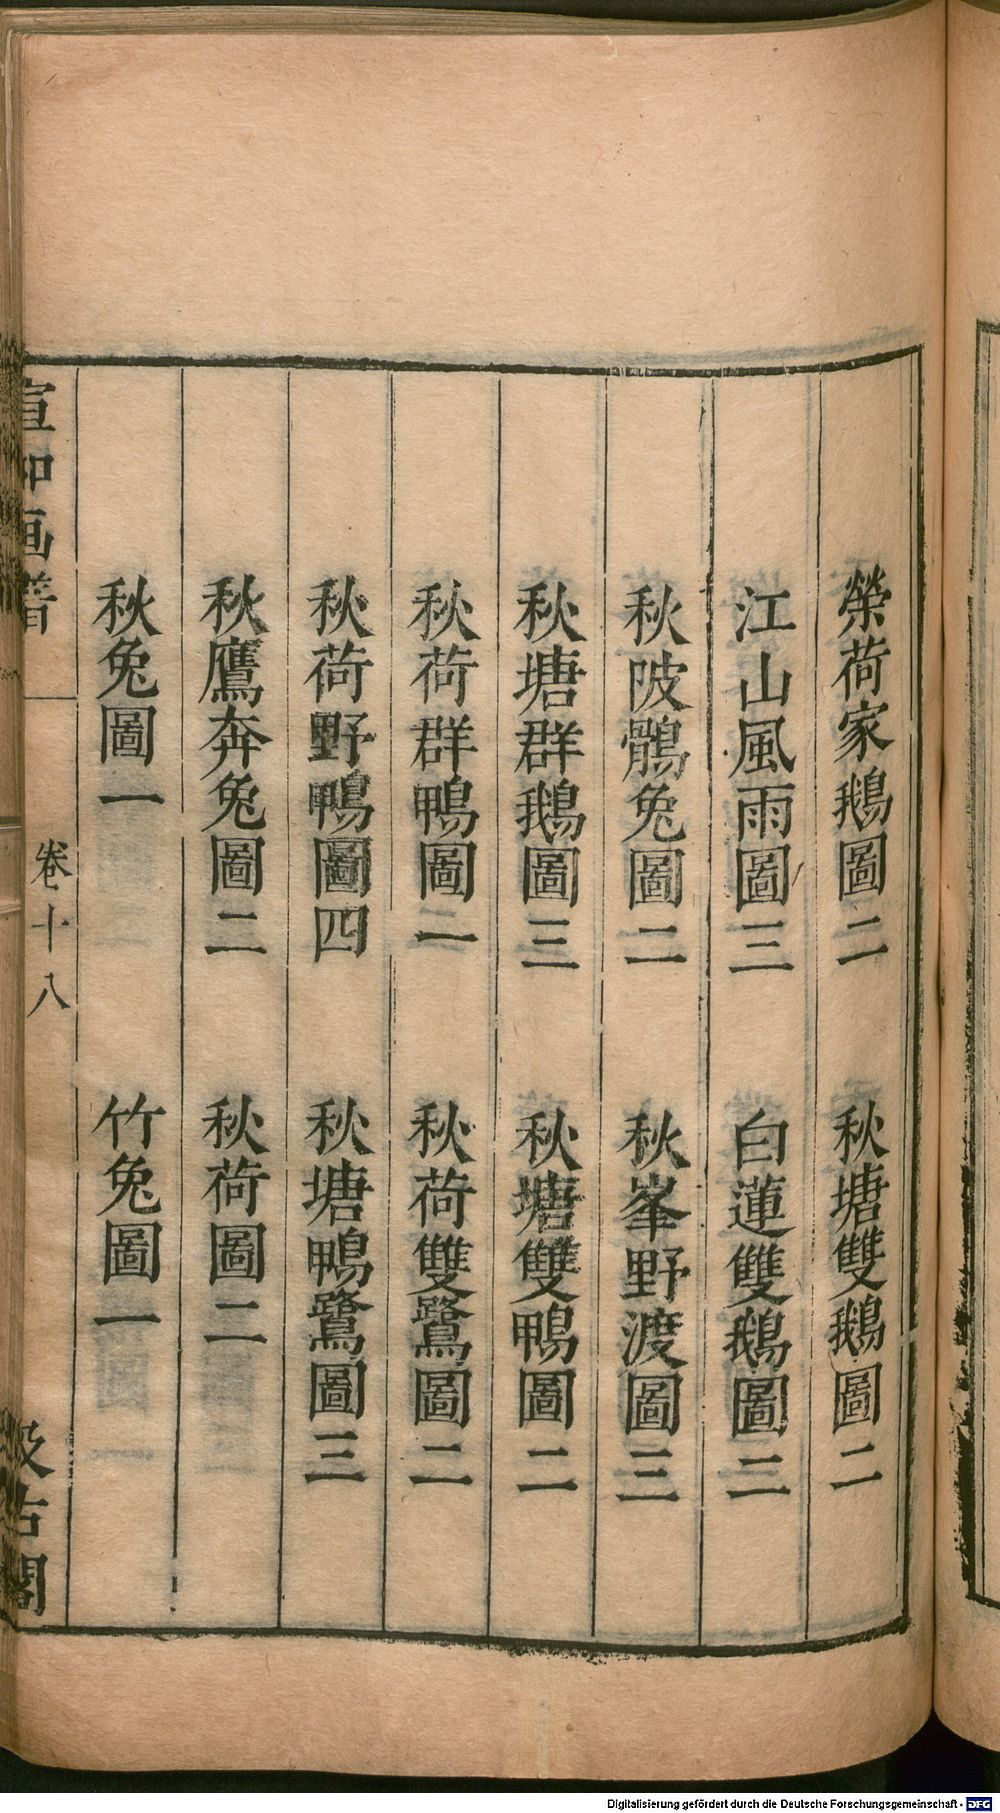 榮荷家鵝圖二　秋塘雙鵝圖二
江山風雨圖三　白蓮雙鵝圖三
秋陂鶻兔圖二　秋峯野渡圖三
秋塘群鵝圖三　秋塘雙鴨圖二
秋荷群鴨圖一　秋荷雙鷺圖二
秋荷野鴨圖四　秋塘鴨鷺圖三
秋鷹奔兔圖二　秋荷圖二
秋兔圖一　竹兔圖一
宣和画譜　卷十八　汲古閣
Digitalisierung gefördert durch die Deutsche Forschungsgemeinschaft - DFG